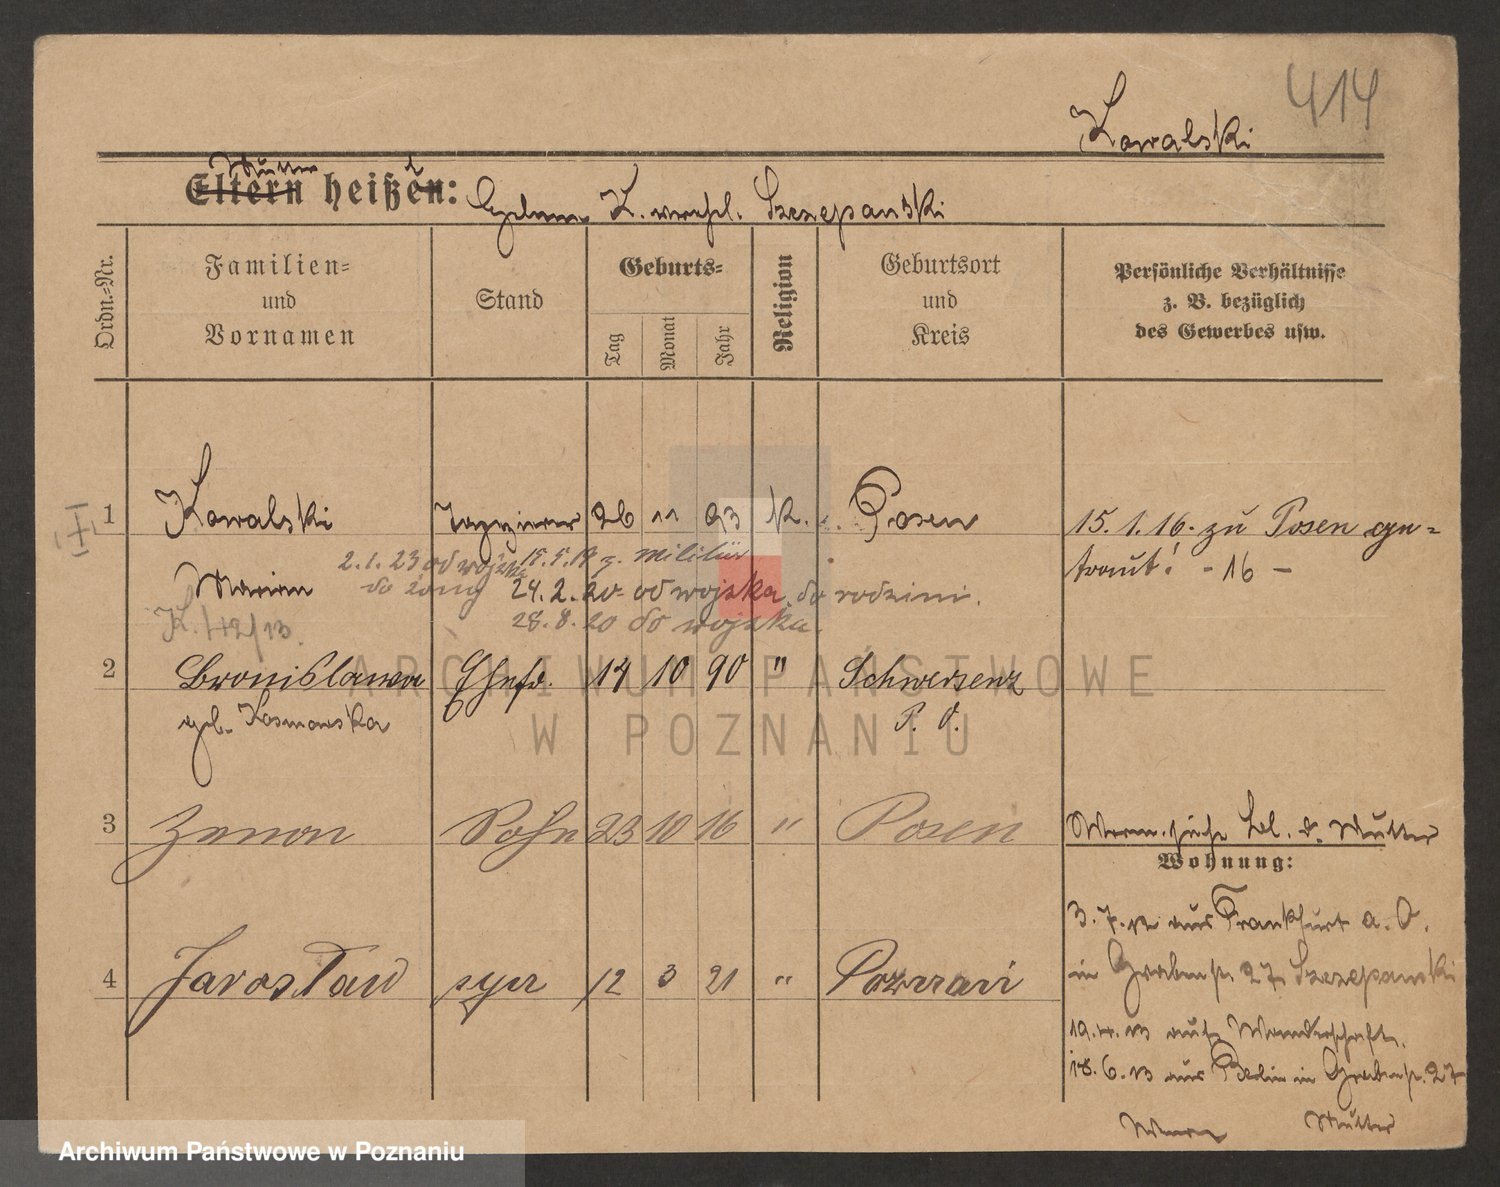 414
Kowalski
Mutter
Eltern heißt en:
K. verehl. Szczepanski
Ordn.-Nr.
Familien-
und
Vornamen
Stand
Geburts-
Tag
Monat
Jahr
Religion
Geburtsort
und
Kreis
Persönliche Verhältnisse
z. B. bezüglich
des Gewerbes usw.
1 Kowalski Tapezierer 26 11 93 K. Posen
15. 1. 16. zu Posen ge-
traut! - 16 -
2.1.23 od wojska 15.5.19 z. Militär
Marian do żony 24.2.20 od wojska do rodzini.
28.8.20 do wojska.
2 Bronislawa Ehefr. 14 10 90 " Schwersenz
geb. Kosmowska P. O.
3 Zenon Sohn 23 10 16 " Posen
siehe Bl. d. Mutter
Wohnung:
4 Jarosław syn 12 3 21 " Poznań
3.7.12 aus Frankfurt a. O.
in Grabenstr. 27 Szczepanski
19.4.13 auf Wanderschaft.
18.6.13 aus Berlin in Grabenstr. 27
Mutter
ARCHIWUM PAŃSTWOWE
W POZNANIU
Archiwum Państwowe w Poznaniu